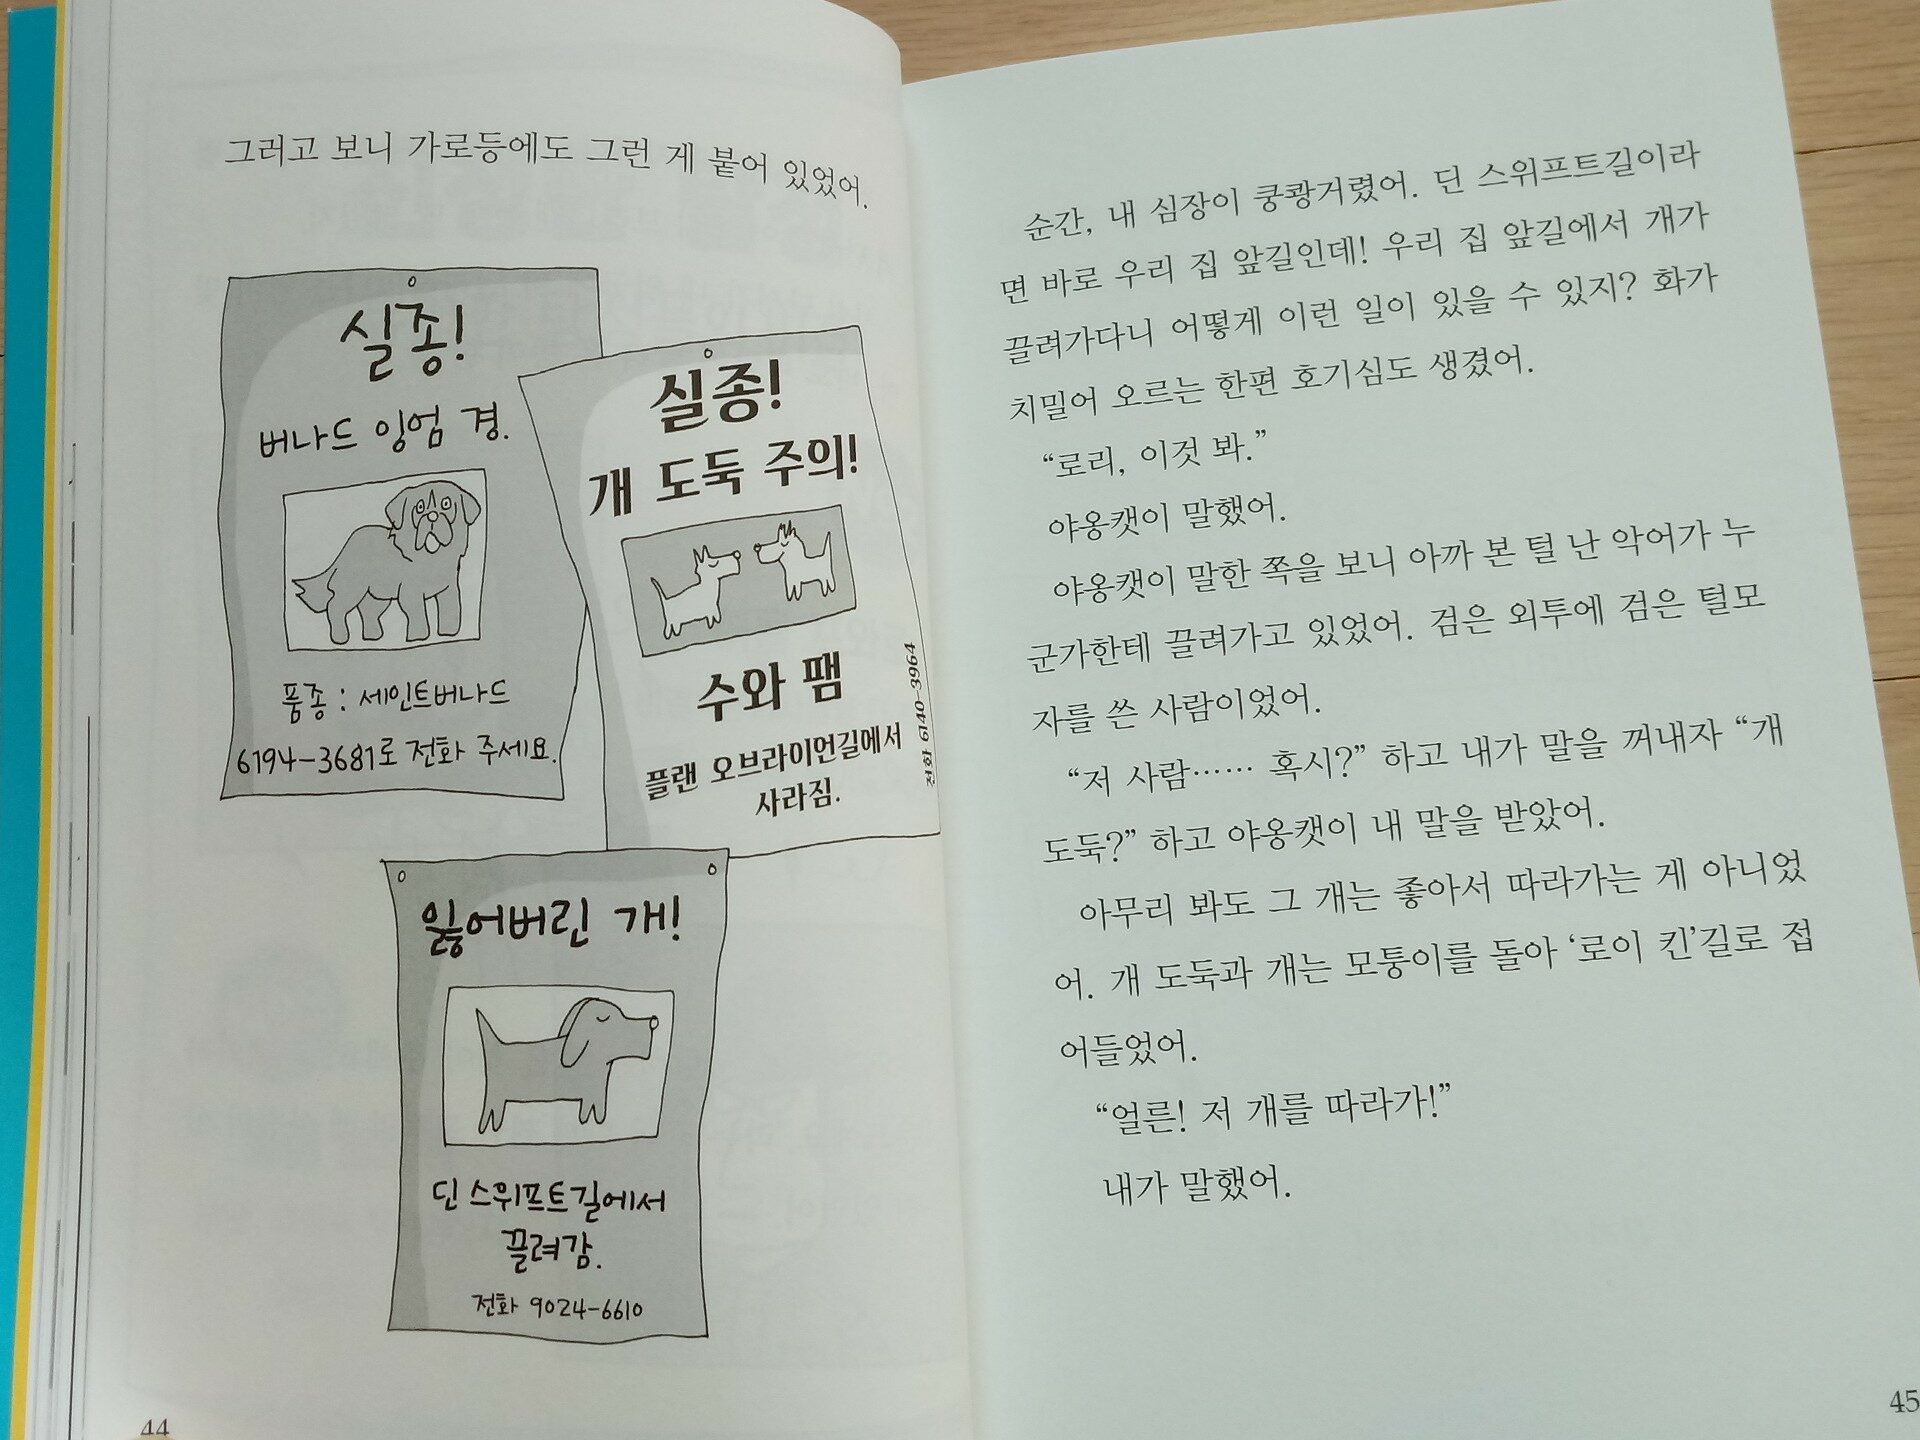 그러고 보니 가로등에도 그런 게 붙어 있었어.
실종!
버나드 잉엄 경.
품종 : 세인트버나드
6194-3681로 전화 주세요.
실종!
개 도둑 주의!
수와 팸
플랜 오브라이언길에서
사라짐.
전화 6140-3964
잃어버린 개!
딘 스위프트길에서
끌려감.
전화 9024-6610
44
순간, 내 심장이 쿵쾅거렸어. 딘 스위프트길이라
면 바로 우리 집 앞길인데! 우리 집 앞길에서 개가
끌려가다니 어떻게 이런 일이 있을 수 있지? 화가
치밀어 오르는 한편 호기심도 생겼어.
“로리, 이것 봐.”
야옹캣이 말했어.
야옹캣이 말한 쪽을 보니 아까 본 털 난 악어가 누
군가한테 끌려가고 있었어. 검은 외투에 검은 털모
자를 쓴 사람이었어.
“저 사람…… 혹시?” 하고 내가 말을 꺼내자 “개
도둑?” 하고 야옹캣이 내 말을 받았어.
아무리 봐도 그 개는 좋아서 따라가는 게 아니었
어. 개 도둑과 개는 모퉁이를 돌아 ‘로이 킨’길로 접
어들었어.
“얼른! 저 개를 따라가!”
내가 말했어.
45